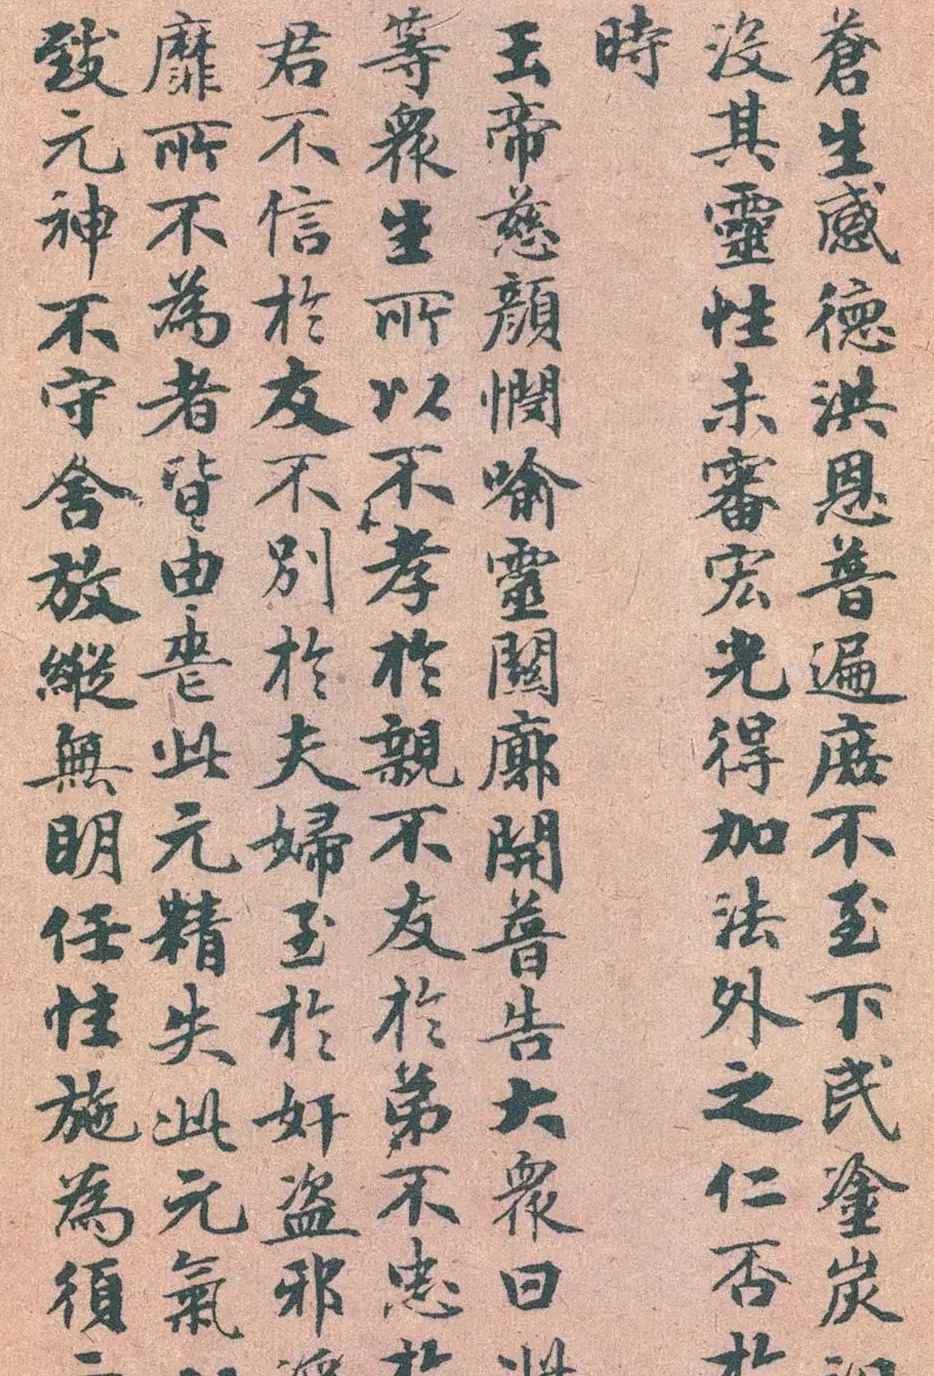 蒼生感德洪恩普遍靡不至下民塗炭
沒其靈性未審宏光得加法外之仁否於
時
玉帝慈顏憫喻靈關廓開普告大眾曰此
等眾生所以不孝於親不友於弟不忠於
君不信於友不別於夫婦至於奸盜邪淫
靡所不為者皆由喪此元精失此元氣
致元神不守舍放縱無明任性施為須